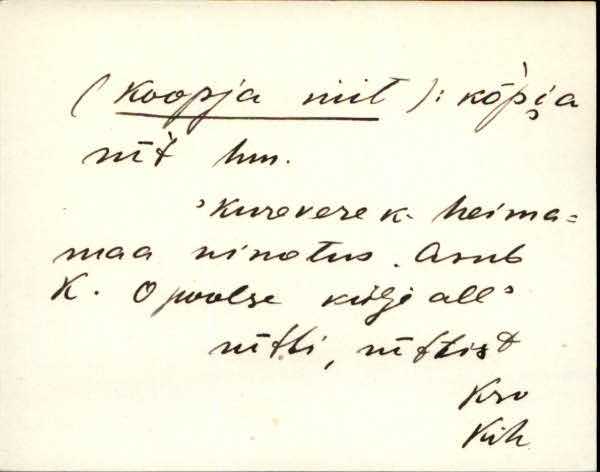 (Koopja niit): kōp̀i̮a
nīt̀ hm.
'Kurevere k. heina=
maa nimetus. Asub
K. O poolse külje all'
nītti, nīttist
Krv
Kih.